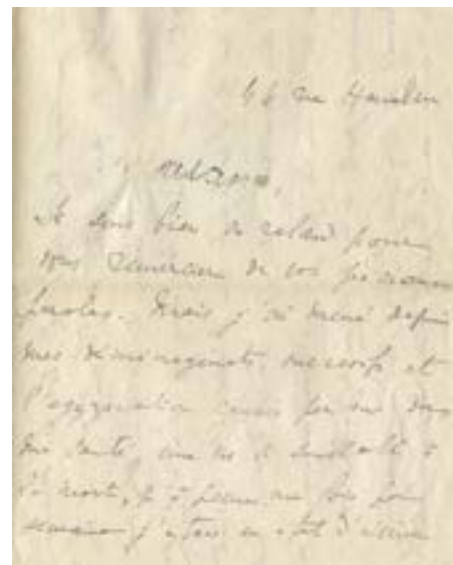 44 rue Hamelin
Madame,
Je suis bien en retard pour
vous remercier de vos précieuses
paroles. Mais j'ai mené depuis
mes déménagements successifs et
l'aggravation causée par eux dans
ma santé, une vie si semblable à
la mort, qu'à peine une fois par
semaine j'étais en état d'écrire